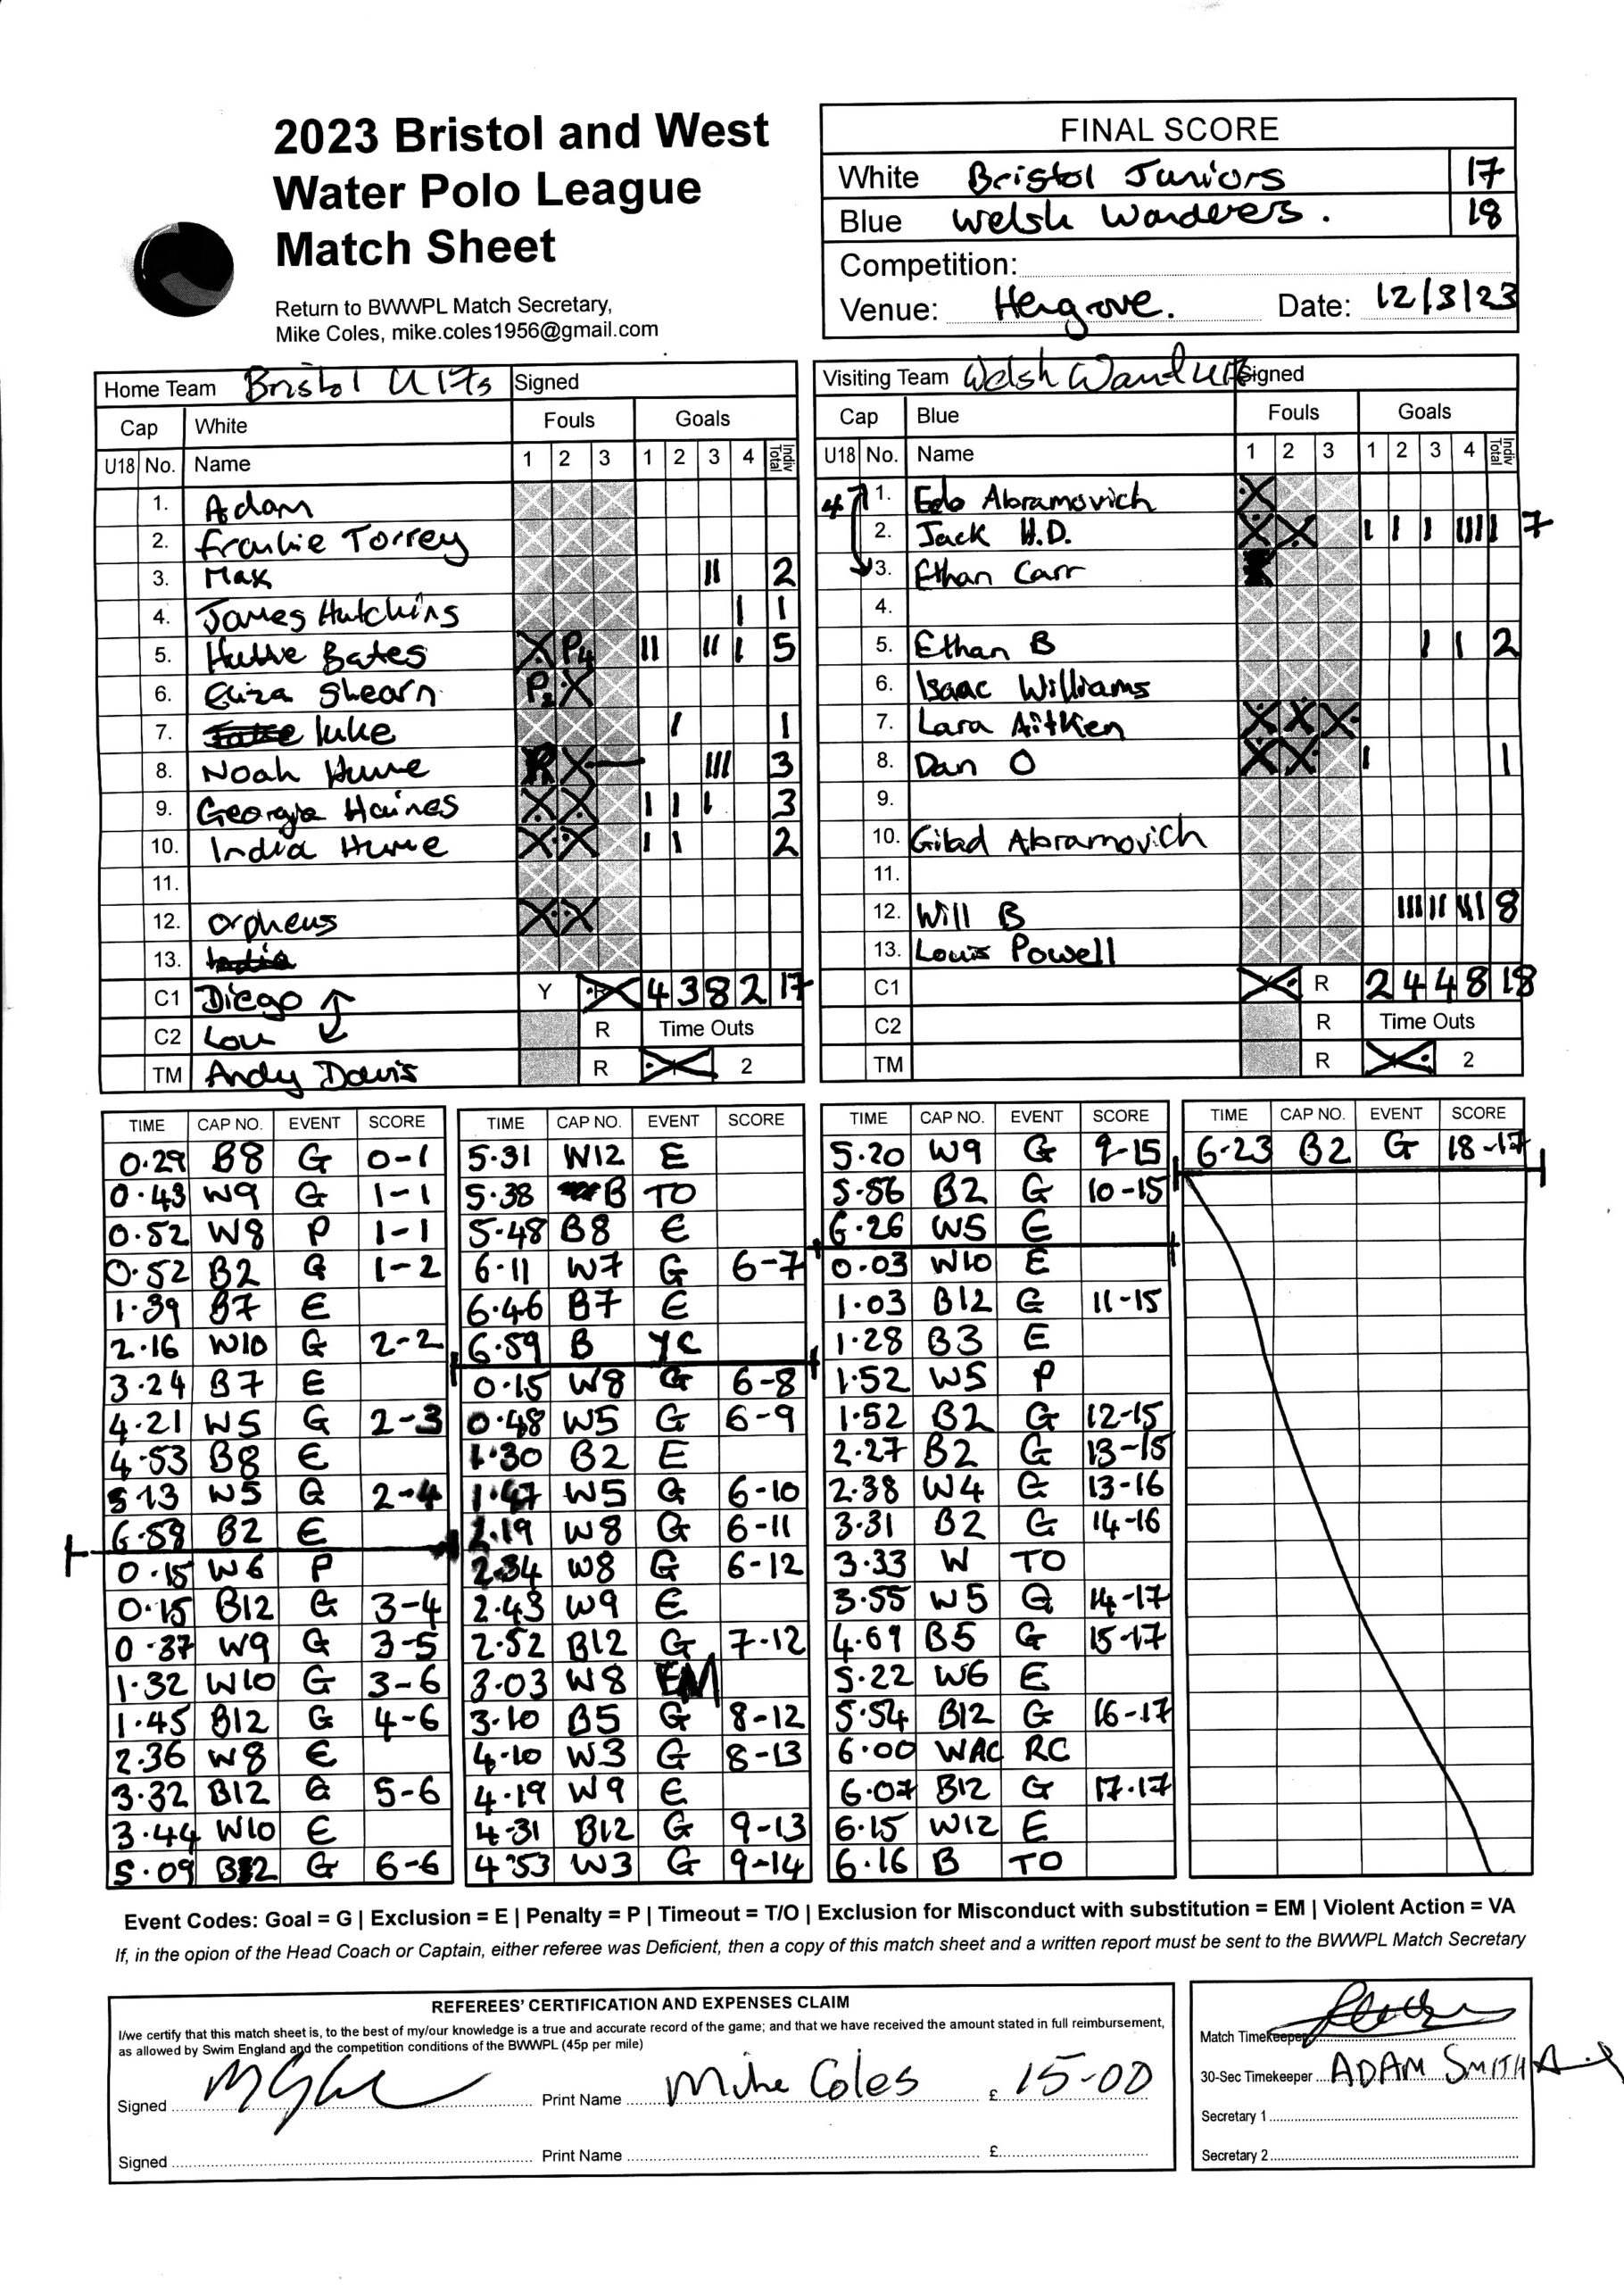 2023 Bristol and West
Water Polo League
Match Sheet
Return to BWWPL Match Secretary,
Mike Coles, mike.coles1956@gmail.com
FINAL SCORE
White Bristol Juniors 17
Blue Welsh Wanderers. 18
Competition:
Venue: Hengrove. Date: 12/3/23
Home Team Bristol U17s Signed
Cap White Fouls Goals
U18 No. Name 1 2 3 1 2 3 4 Indiv Total
1. Adam
2. Frankie Torrey
3. Max II 2
4. James Hutchins I 1
5. Bates X P4 II II I 5
6. Eliza Shearn P2 X
7. Luke I 1
8. Noah Hume X III 3
9. Georgia Haines X X I I I 3
10. India Hume X X I I 2
11.
12. Orpheus X X
13. India
C1 Diego Y R 4 3 8 2 17
C2 Lou R Time Outs
TM Andy Davis R 1 2
Visiting Team Welsh Wanderers Signed
Cap Blue Fouls Goals
U18 No. Name 1 2 3 1 2 3 4 Indiv Total
1. Edo Abramovich X
2. Jack H.D. X X I I I IIII 7
3. Ethan Carr
4.
5. Ethan B I I 2
6. Isaac Williams
7. Lara Aitken X X X
8. Dan O X X I 1
9.
10. Gilad Abramovich
11.
12. Will B 8
13. Louis Powell
C1 Y R 2 4 4 8 18
C2 R Time Outs
TM R 1 2
TIME CAP NO. EVENT SCORE
0.29 B8 G 0-1
0.43 W9 G 1-1
0.52 W8 P 1-1
0.52 B2 G 1-2
1.39 B7 E
2.16 W10 G 2-2
3.24 B7 E
4.21 W5 G 2-3
4.53 B8 E
5 13 W5 G 2-4
6.59 B2 E
0.15 W6 P
0.15 B12 G 3-4
0.37 W9 G 3-5
1.32 W10 G 3-6
1.45 B12 G 4-6
2.36 W8 E
3.32 B12 G 5-6
3.44 W10 E
5.09 B12 G 6-6
TIME CAP NO. EVENT SCORE
5.31 W12 E
5.38 B TO
5.48 B8 E
6.11 W7 G 6-7
6.46 B7 E
6.59 B YC
0.15 W8 G 6-8
0.48 W5 G 6-9
1.30 B2 E
1.47 W5 G 6-10
2.19 W8 G 6-11
2.34 W8 G 6-12
2.43 W9 E
2.52 B12 G 7-12
3.03 W8 EM
3.10 B5 G 8-12
4.10 W3 G 8-13
4.19 W9 E
4.31 B12 G 9-13
4.53 W3 G 9-14
TIME CAP NO. EVENT SCORE
5.20 W9 G 9-15
5.56 B2 G 10-15
6.26 W5 E
0.03 W10 E
1.03 B12 G 11-15
1.28 B3 E
1.52 W5 P
1.52 B2 G 12-15
2.27 B2 G 13-15
2.38 W4 G 13-16
3.31 B2 G 14-16
3.33 W TO
3.55 W5 G 14-17
4.69 B5 G 15-17
5.22 W6 E
5.54 B12 G 16-17
6.00 WAC RC
6.07 B12 G 17.17
6.15 W12 E
6.16 B TO
TIME CAP NO. EVENT SCORE
6.23 B2 G 18-17
Event Codes: Goal = G | Exclusion = E | Penalty = P | Timeout = T/O | Exclusion for Misconduct with substitution = EM | Violent Action = VA
If, in the opion of the Head Coach or Captain, either referee was Deficient, then a copy of this match sheet and a written report must be sent to the BWWPL Match Secretary
REFEREES' CERTIFICATION AND EXPENSES CLAIM
I/we certify that this match sheet is, to the best of my/our knowledge is a true and accurate record of the game; and that we have received the amount stated in full reimbursement,
as allowed by Swim England and the competition conditions of the BWWPL (45p per mile)
Signed Print Name Mike Coles £ 15-00
Signed Print Name £
Match Timekeeper
30-Sec Timekeeper ADAM SMITH
Secretary 1
Secretary 2